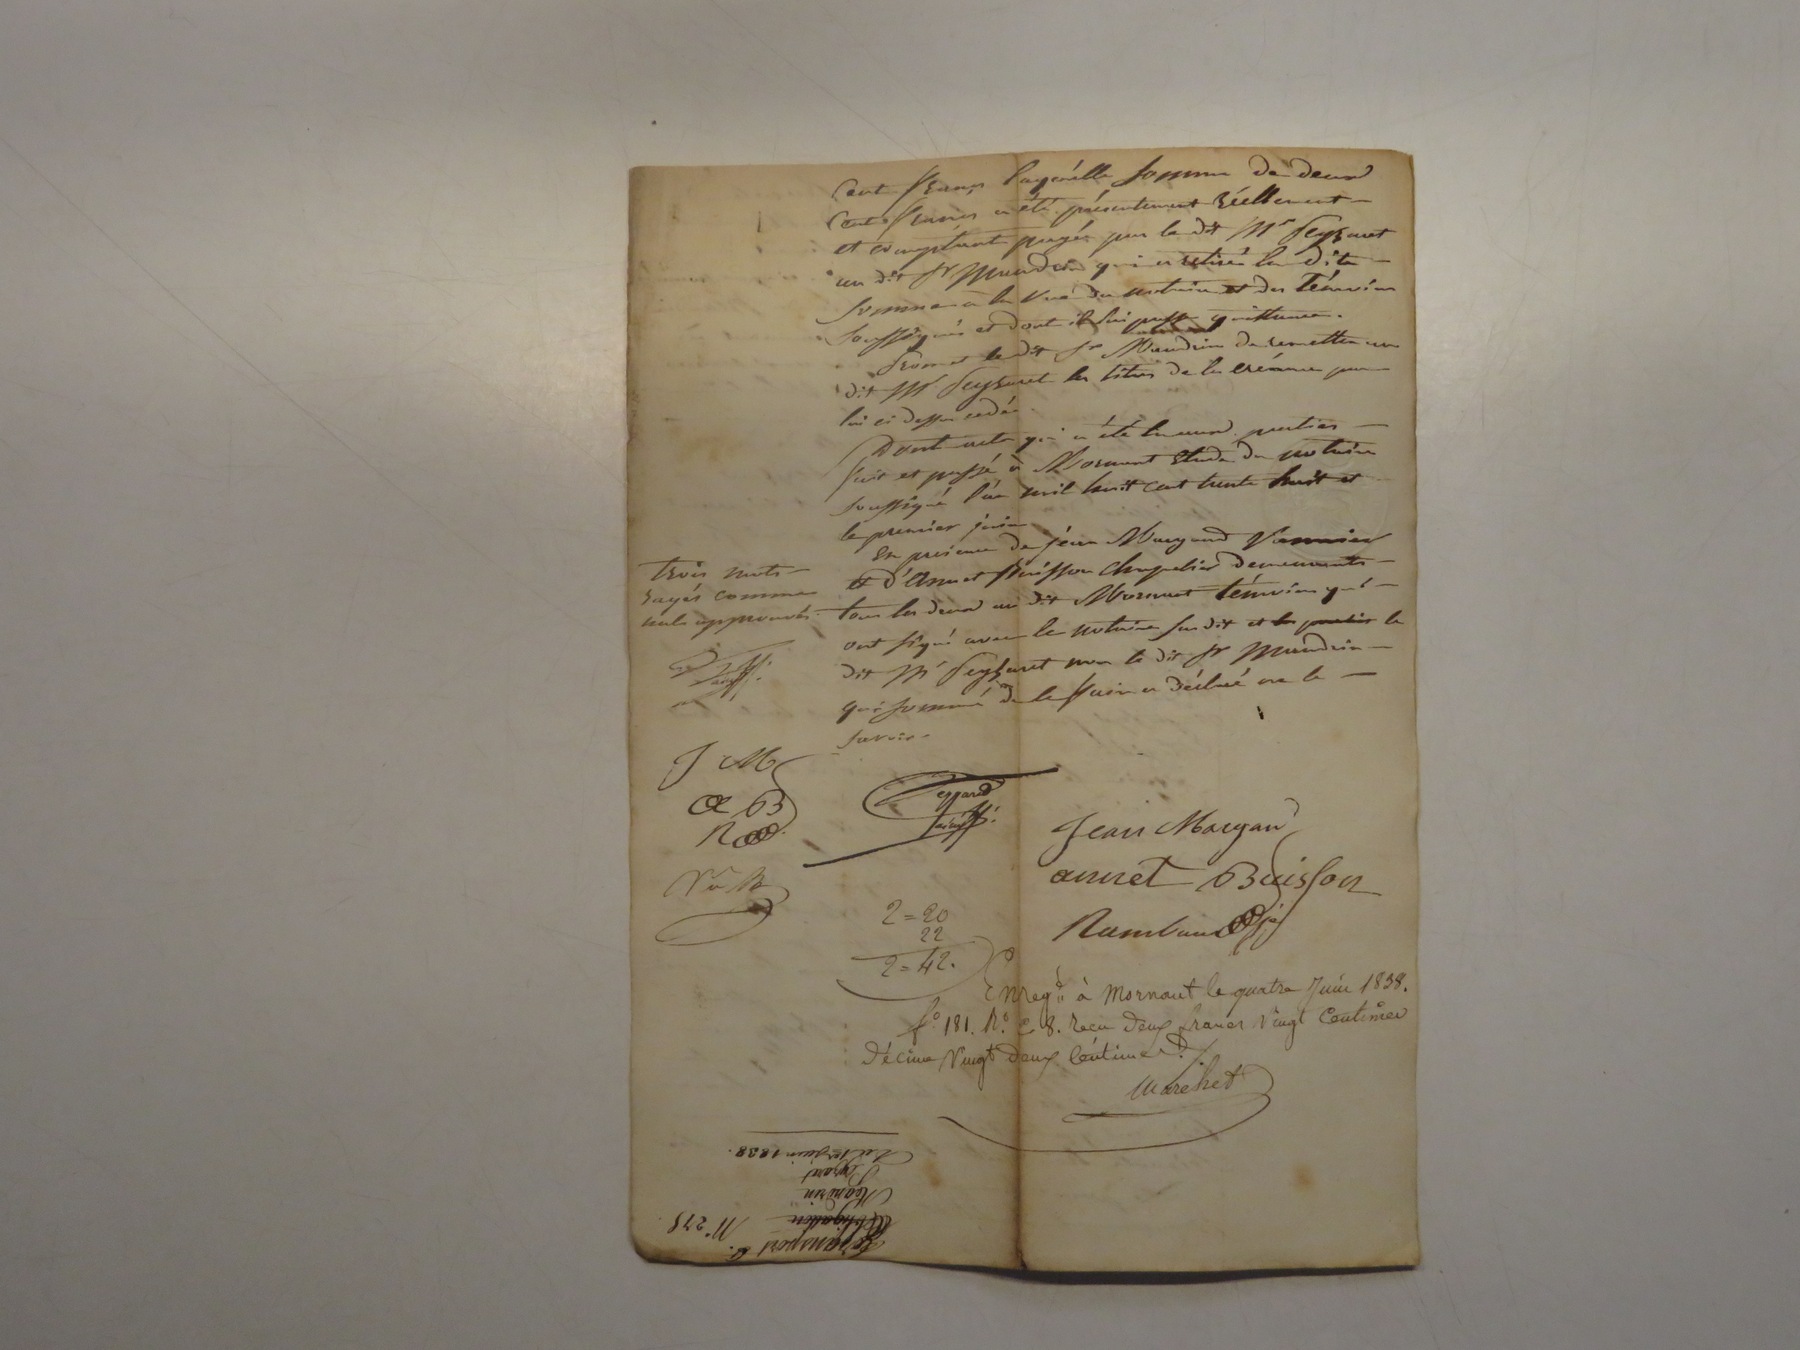 Cent francs laquelle somme de deux
Cent francs a été présentement réellement
et comptant payée par le dit Mr Peyzaret
au dit Sr Mandrin qui a retiré la dite
somme à la vue du notaire et des témoins
soussignés et dont il lui passe quittance.
Promet le dit Sr Mandrin de remettre au
dit Mr Peyzaret les titres de la créance par
lui ci dessus cédée
Dont acte qui a été lu aux parties
fait et passé à Mornant Etude du notaire
soussigné l'an mil huit cent trente huit et
le premier juin
En présence de Jean Margand
et d'Annet Buisson Chapelier demeurants
tous les deux au dit Mornant témoins qui
ont signé avec le notaire susdit et les parties le
dit Mr Peyzaret non le dit Sr Mandrin
qui sommé de le faire a déclaré ne le
savoir.
trois mots
rayés comme
nuls approuvés
J M
a B
R
Vu B
Jean Margan
annet Buisson
Rambaud
2=20
22
2=42.
Enregé à Mornant le quatre Juin 1838.
fo. 181. Ro. c 8. recu deux francs Vingt Centimes
Décime Vingt deux Centimes.
Marchet
Transport
N° 278
Obligation
Mandrin
Du 1er juin 1838.